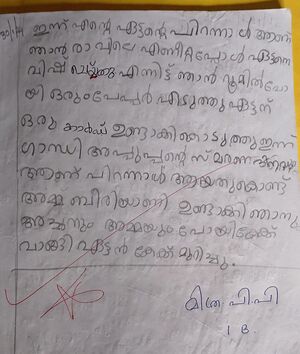 30/1/24 ഇന്ന് എന്റെ ഏട്ടന്റെ പിറന്നാൾ ആണ്
ഞാൻ രാവിലെ എണീറ്റപ്പോൾ ഏട്ടനെ
വിഷ് ചെയ്തു എന്നിട്ട് ഞാൻ റൂമിൽ പോ
യി ഒരു പേപ്പർ എടുത്തു ഏട്ടന്
ഒരു കാർഡ് ഉണ്ടാക്കികൊടുത്തു ഇന്ന്
ഗാന്ധി അപ്പൂപ്പന്റെ സ്മരണ
ആണ് പിറന്നാൾ ആയതുകൊണ്ട്
അമ്മ ബിരിയാണി ഉണ്ടാക്കി ഞാനു
അച്ചനും അമ്മയും പോയി കേക്ക്
വാങ്ങി ഏട്ടൻ കേക്ക് മുറിച്ചു.
മിത്ര പി.പി
1 B.